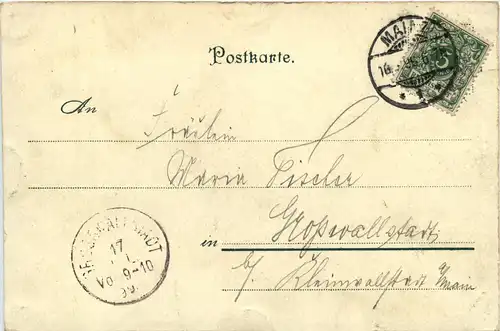 Postkarte.
MAINZ
An
Fräulein
Maria Fischer
Großwallstadt
in
b/ Kleinwallstadt a/Main
GROSSWALLSTADT
17
1.
Vo 9-10
99.